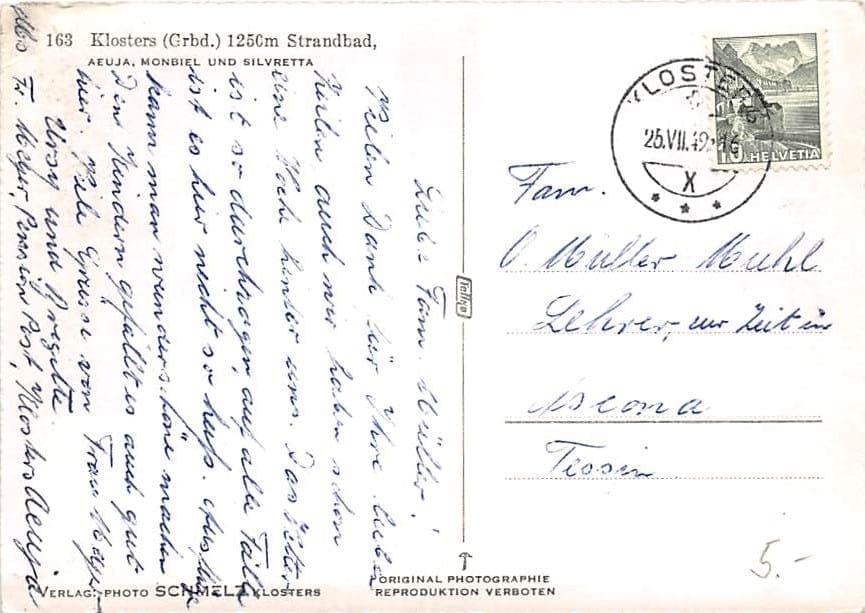 163 Klosters (Grbd.) 1250m Strandbad,
AEUJA, MONBIEL UND SILVRETTA
Liebe Fam. Müller!
Vielen Dank für Ihre lieben
Zeilen. auch wir haben schon
eine Woche hinter uns. Das Wetter
ist so durchzogen, auf alle Fälle
ist es hier nicht so heiss.
kann man wunderschöne machen
Den Kindern gefällt es auch gut
hier. Viele Grüsse von Frau Meyer
Ursy und Brigitte.
Fr. Meyer, Pension Post, Klosters Aeuja
KLOSTERS
25.VII.49.-16
X
10 HELVETIA
Fam.
O. Müller Muhl
Lehrer, zur Zeit in
Ascona
Tessin
5.-
VERLAG: PHOTO SCHMELZ KLOSTERS
ORIGINAL PHOTOGRAPHIE
REPRODUKTION VERBOTEN